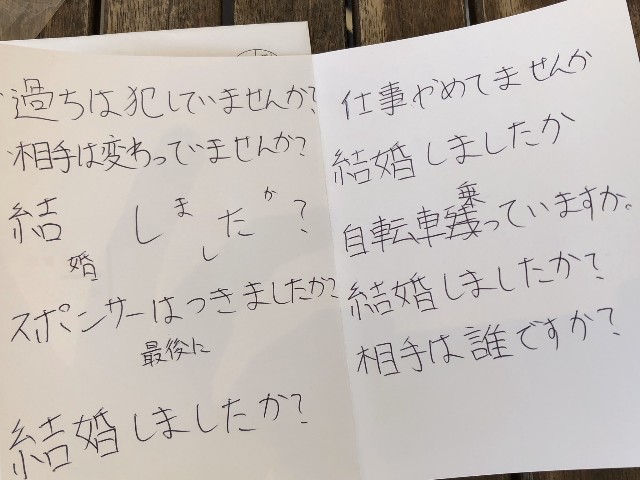 過ちは犯していませんか?
相手は変わっていませんか?
結婚しましたか?
スポンサーはつきましたか?
最後に
結婚しましたか?
仕事やめてませんか
結婚しましたか
自転車乗っていますか。
結婚しましたか?
相手は誰ですか?